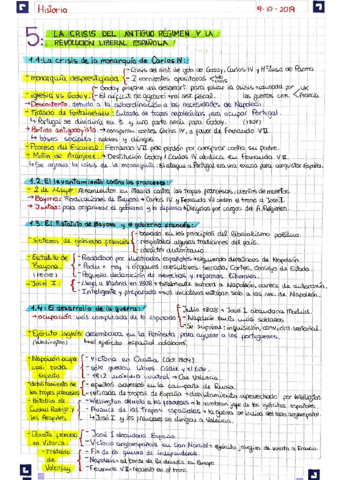 Historia
9-10-2019
5: LA CRISIS DEL ANTIGUO RÉGIMEN Y LA
REVOLUCIÓN LIBERAL ESPAÑOLA
1.1: La crisis de la monarquía de Carlos IV:
- monarquía desprestigiada
- Crisis de sist. de gob. de Godoy, Carlos IV y Mª Luisa de Parma
- 2 corrientes opositoras
- Iglesia vs Godoy:
- Godoy propone una desamort. para paliar la crisis causada por
- El déficit de agravó
las guerras con Francia
→ Descontento debido a la subordinación a las necesidades de Napoleón.
- Tratado de Fontainebleau: Entrada de tropas napoleónicas para ocupar Portugal.
↳ Portugal se dividiría en 3 y una parte sería para Godoy (1807)
- Partido antigodoyista → conspiran contra Carlos IV, a favor de Fernando VII.
↳ bases sociales: nobles y clérigos.
- Proceso del Escorial: Fernando VII fue pillado por conspirar contra su padre.
- Motín de Aranjuez: → Destitución Godoy / Carlos IV abdica en Fernando VII.
1.2: El levantamiento contra los franceses:
- 2 de Mayo: levantamiento en Madrid contra las tropas francesas, cientos de muertos.
- Bayona: Abdicaciones de Bayona → Carlos IV y Fernando VII ceden el trono a José I.
- Juntas: para organizar el gobierno y la defensa → Dirigidas por cargos del A. Régimen.
1.3: El Estatuto de Bayona y el gobierno francés:
- Sistema de gobierno francés
- basado en los principios del liberalismo político.
- respetaba algunas tradiciones del país.
- carácter autoritario.
- Estatuto de Bayona: (1808)
- Redactado por ilustrados españoles siguiendo directrices de Napoleón.
- Poder → rey + órganos consultivos: Senado, Cortes, Consejo de Estado
- Pequeña declaración de derechos y reformas liberales.
- José I:
- Llega a Madrid en 1808 → totalmente subord. a Napoleón, carece de autonomía.
- Inteligente y preparado → sus iniciativas estaban solo a las de Napoleón.
1.4: El desarrollo de la guerra:
- ocupación: más complicada de lo esperado
- Julio 1808 → José I abandona Madrid.
- Napoleón envía más soldados.
- Se suprime: Inquisición, conventos
- Ejército inglés: desembarca en la Península para ayudar a los portugueses.
(Wellington) ↳ + el ejército español colaboró.
- Napoleón ocupa casi toda España
- Victoria en Ocaña (nov 1809)
- sólo quedan libres Cádiz y el Este.
- 1812: máximo control → cae Valencia.
- debilitamiento de las tropas francesas
- efectos adversos en la campaña de Rusia.
- retirada de tropas de España → debilitamiento aprovechado por Wellington
- Batallas de Ciudad Rodrigo y los Arapiles
- Wellington derrota a los franceses → le nombran jefe de los ejércitos españoles.
- Avance de las tropas españolas
↳ José I y los franceses se dirigen a Valencia.
- Derrota francesa en Vitoria:
- José I abandona España.
- Tratado de Valençay
- Fin de la guerra de independencia.
- Napoleón al borde de la derrota en Europa
- Fernando VII repuesto en el trono.